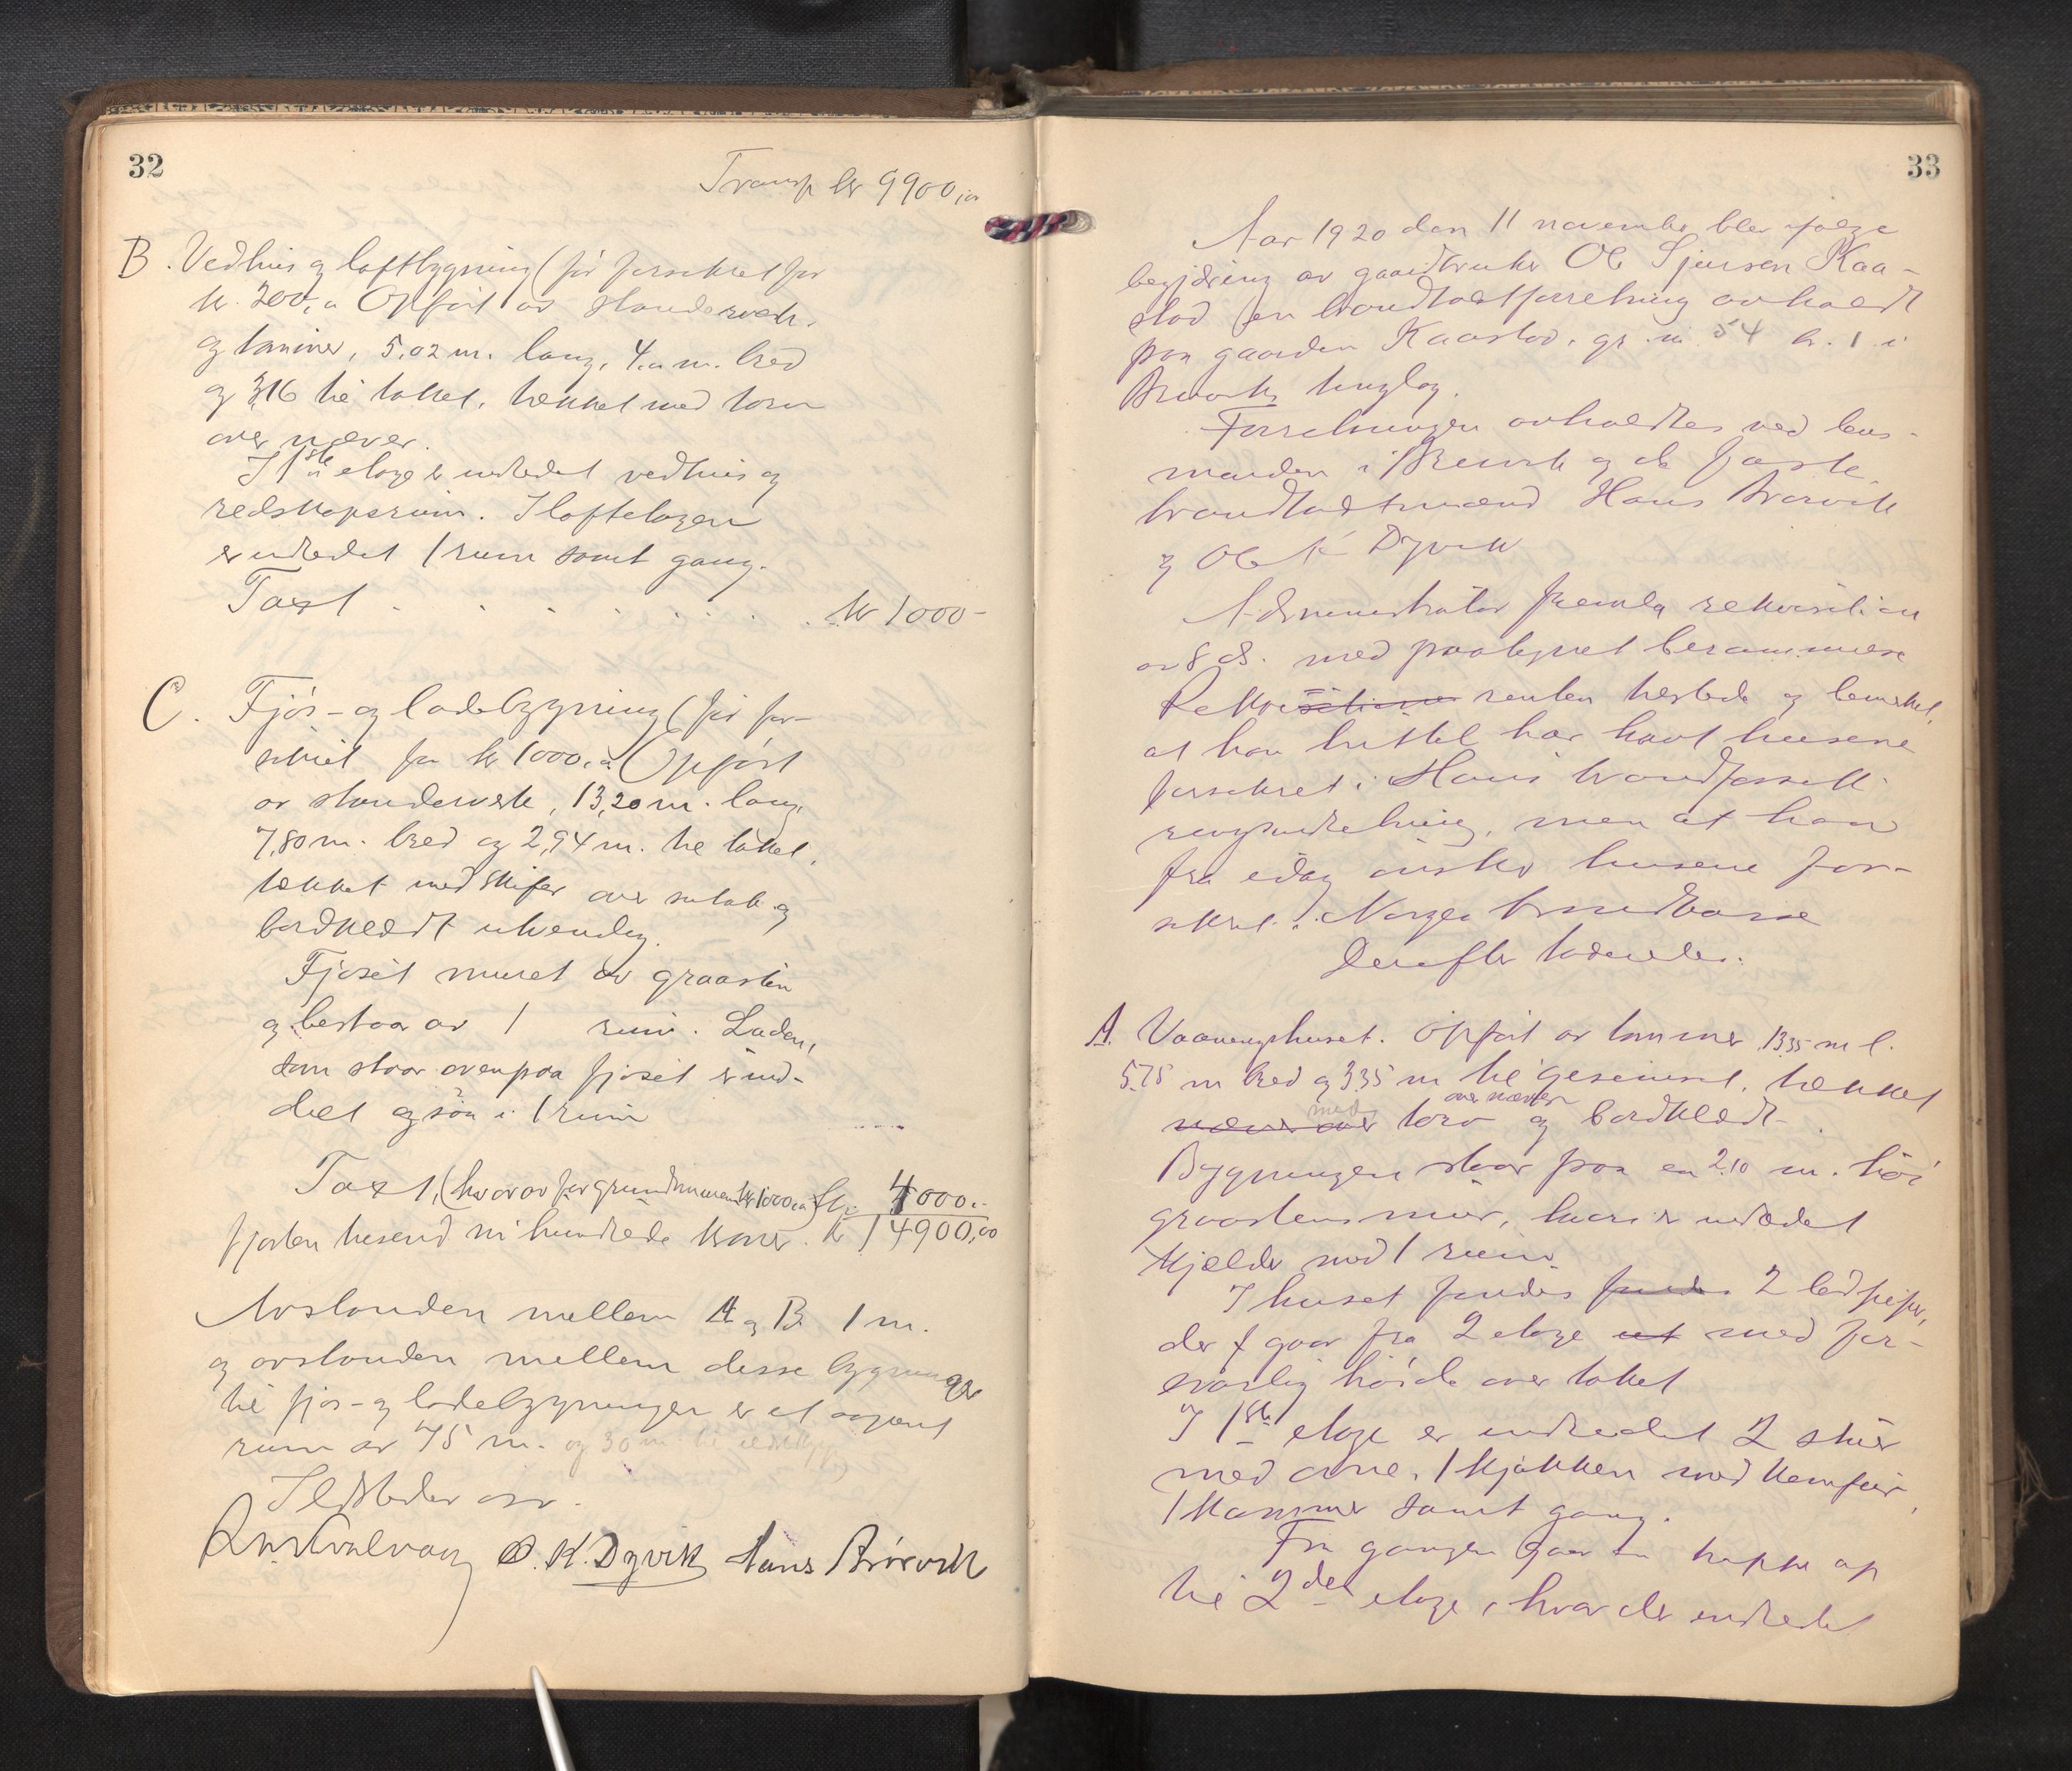 32
Transp kr 9900,00
B. Vedhus og loftbygning (før forsikret for
kr. 200,00 Opført av standerverk
og tømmer, 5,02 m. lang, 4,00 m. bred
og 3,16 til taket, tækket med torv
over næver.
I 1ste etage er indredet vedhus og
redskapsrum. I loftetagen
er indredet 1 rum samt gang.
Taxt . . . . . . . kr 1000-
C. Fjøs- og ladebygning (før for-
sikret for kr 1000,00 Opført
av standerverk, 13,20 m. lang,
7,80 m. bred og 2,94 m. til taket,
tækket med skifer over sutak og
bordklædt utvendig.
Fjøset muret av graasten
og bestaar av 1 rum. Laden,
som staar ovenpaa fjøset er ind-
delt ogsaa i 1 rum
Taxt, (hvorav for grundmuren kr 1000,00) kr. 4000.-
fjorten tusend ni hundrede kroner. kr 14900,00
Avstanden mellem A og B 1 m.
og avstanden mellem disse bygninger
til fjøs- og ladebygningen er et aapent
rum av 75 m. og 30 m. til
Ildsteder osv.
O. K. Dyvik Hans Brørvik
33
Aar 1920 den 11 november blev ifølge
begjæring av gaardbruker Ole Sjursen Kaa-
stad en brandtakstforretning avholdt
paa gaarden Kaastad, gr. nr. 54 br. 1 i
tinglag.
Forretningen avholdtes ved lens-
manden i og de faste
brandtakstmænd Hans Brørvik
og Ole K Dyvik
Administrator fremla rekvisition
av 8 ds. med paategnet berammelse
Rekvirenten tilstede og bemerket,
at han hittil har havt husene
forsikret i Haus brandforsik-
ringsindretning, men at han
fra idag ønsker husene for-
sikret i Norges brandkasse
Derefter toderedes.
A. Vaaningshuset. Opført av tømmer 13,35 m l.
5,75 m bred og 3,35 m til gesimset, tækket
næver over med torv over næver og bordklædt.
Bygningen staar paa en 2,10 m. høi
graastensmur, hvori er indrædet
kjælder med 1 rum.
I huset findes findes 2 brandpiper,
der gaar fra 2 etage ut med for-
svarlig høide over taket
I 1ste etage er indredet 2 stuer
med ovne, 1 kjøkken med komfur,
1 kammer samt gang.
Fra gangen gaar en trappe op
til 2den etage, hvor der indredet